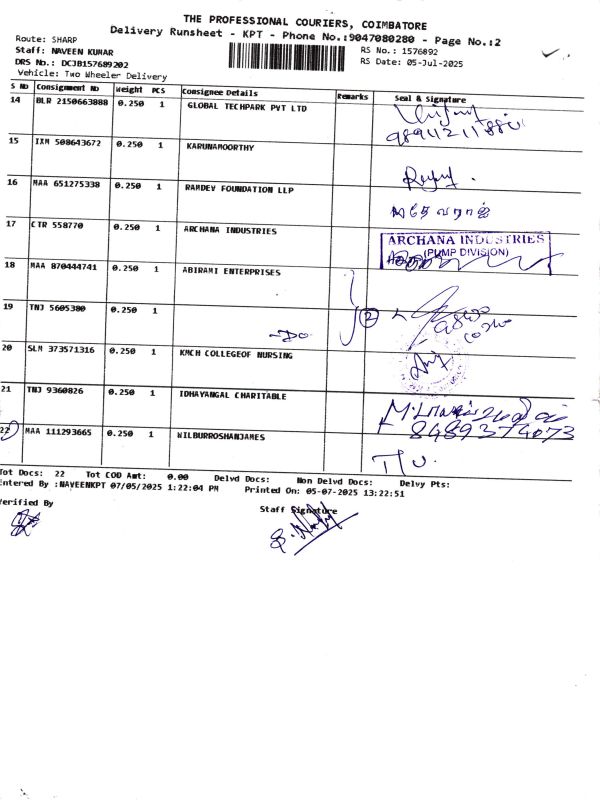 THE PROFESSIONAL COURIERS, COIMBATORE
Delivery Runsheet - KPT - Phone No.:9047080280 - Page No.:2
Route: SHARP
RS No.: 1576892
Staff: NAVEEN KUMAR
RS Date: 05-Jul-2025
DRS No.: DCJB157689202
Vehicle: Two Wheeler Delivery
S No Consignment No Weight PCS Consignee Details Remarks Seal & Signature
14 BLR 2150663888 0.250 1 GLOBAL TECHPARK PVT LTD
15 IXM 508643672 0.250 1 KARUNAMOORTHY
16 MAA 651275338 0.250 1 RAMDEV FOUNDATION LLP
தேவராஜ்
17 CTR 558770 0.250 1 ARCHANA INDUSTRIES
ARCHANA INDUSTRIES
(PUMP DIVISION)
18 MAA 870444741 0.250 1 ABIRAMI ENTERPRISES
19 TNJ 5605380 0.250 1
-Do
2
20 SLM 373571316 0.250 1 KMCH COLLEGEOF NURSING
21 TNJ 9360826 0.250 1 IDHAYANGAL CHARITABLE
8489374073
22 MAA 111293665 0.250 1 WILBURROSHANJAMES
Tot Docs: 22 Tot COD Amt: 0.00 Delvd Docs: Non Delvd Docs: Delvy Pts:
Entered By :NAVEENKPT 07/05/2025 1:22:04 PM Printed On: 05-07-2025 13:22:51
Verified By
Staff Signature